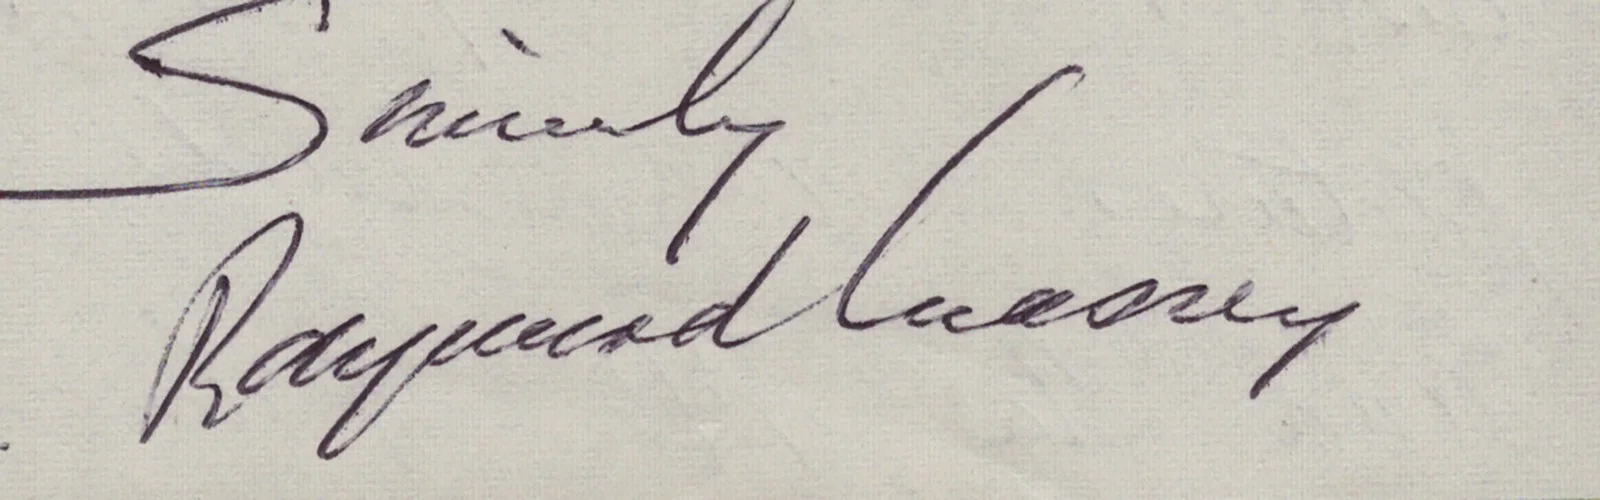 Sincerely
Raymond Massey